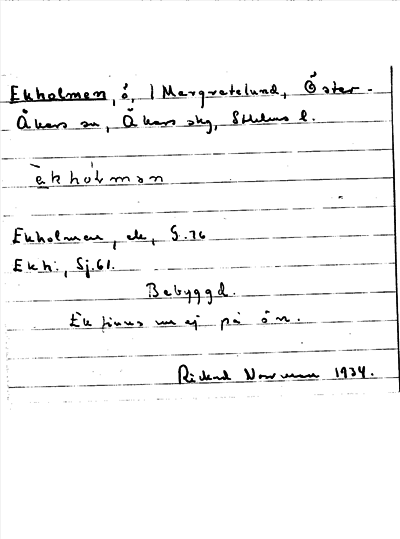 Ekholmen, ö, / Margretelund, Öster-
Åkers sn, Åkers skg, Sthlms l.
èkhólmən
Ekholmen, ek, G. 76
Ekh., Sj. 61.
Bebyggd.
Ek finns nu ej på ön.
Rickard Norrman 1934.